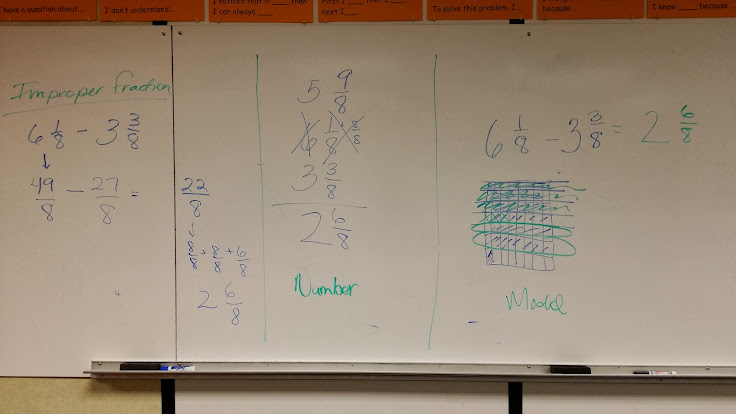 have a question about...
I don't understand...
I noticed that if ___ then
I can always ___
next I ___
To solve this problem, I...
because...
I know ___ because
Improper fraction
6 1/8 - 3 3/8
↓
49/8 - 27/8 =
22/8
8/8 + 8/8 + 6/8
2 6/8
5 9/8
6 1/8 + 8/8
3 3/8
2 6/8
Number
6 1/8 - 3 3/8 = 2 6/8
Model